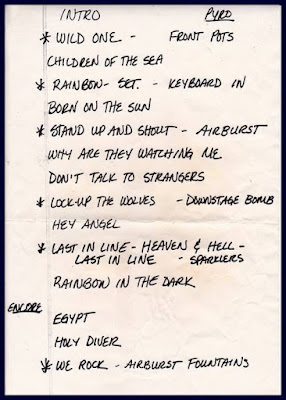 INTRO PYRO
* WILD ONE - FRONT POTS
CHILDREN OF THE SEA
* RAINBOW - SET. - KEYBOARD IN
BORN ON THE SUN
* STAND UP AND SHOUT - AIRBURST
WHY ARE THEY WATCHING ME
DON'T TALK TO STRANGERS
* LOCK UP THE WOLVES - DOWNSTAGE BOMB
HEY ANGEL
* LAST IN LINE - HEAVEN & HELL -
LAST IN LINE - SPARKLERS
RAINBOW IN THE DARK
ENCORE
EGYPT
HOLY DIVER
* WE ROCK - AIRBURST FOUNTAINS